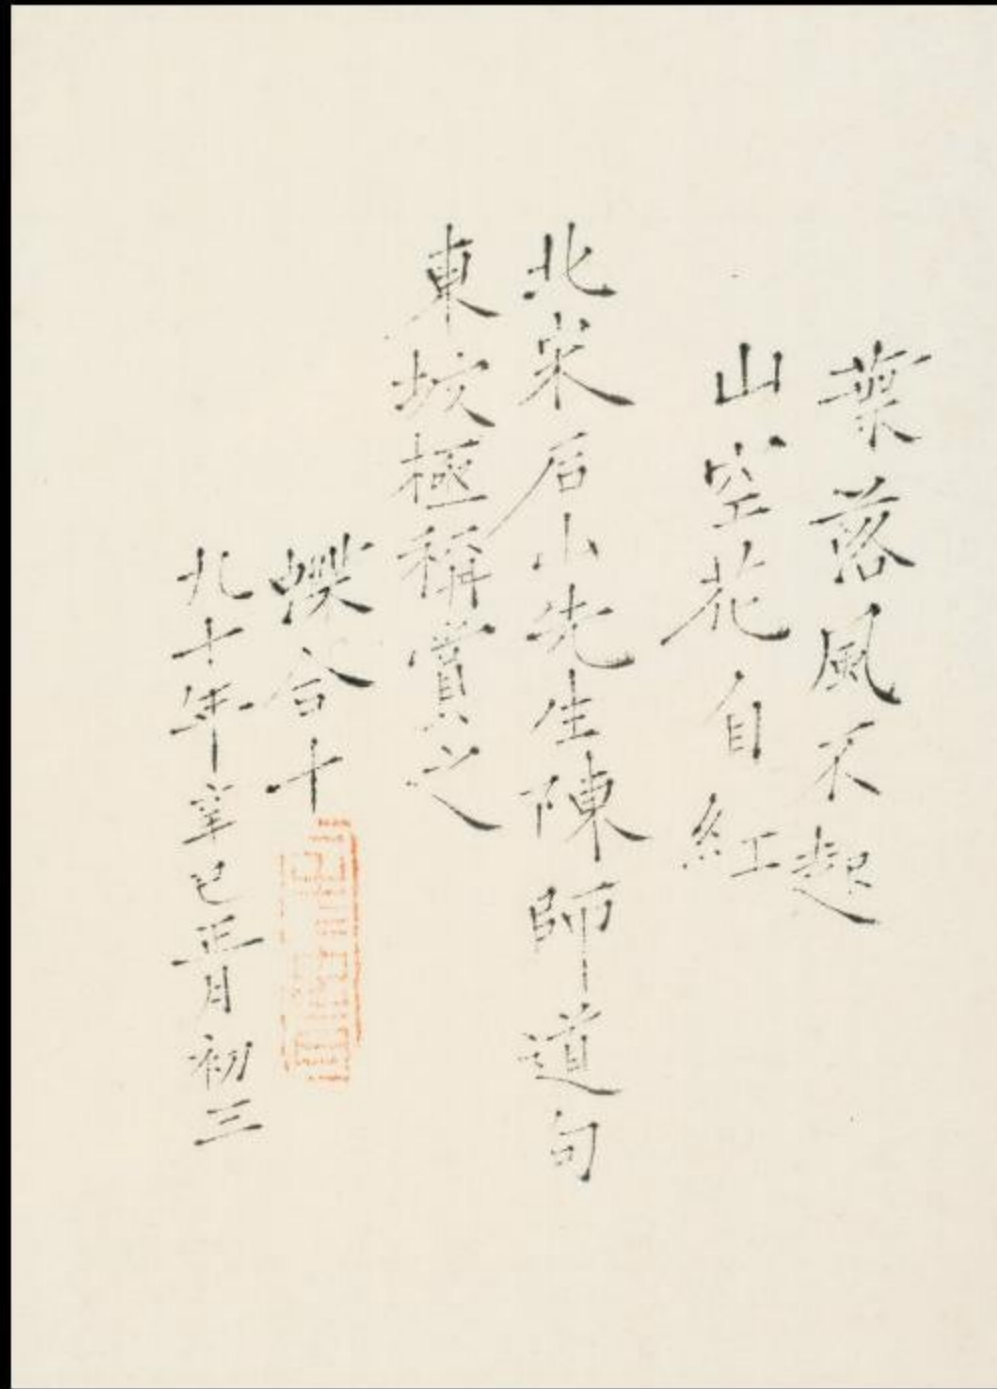 葉落風不起
山空花自紅
北宋后山先生陳師道句
東坡極稱賞之
蝶合十
九十年辛巳正月初三